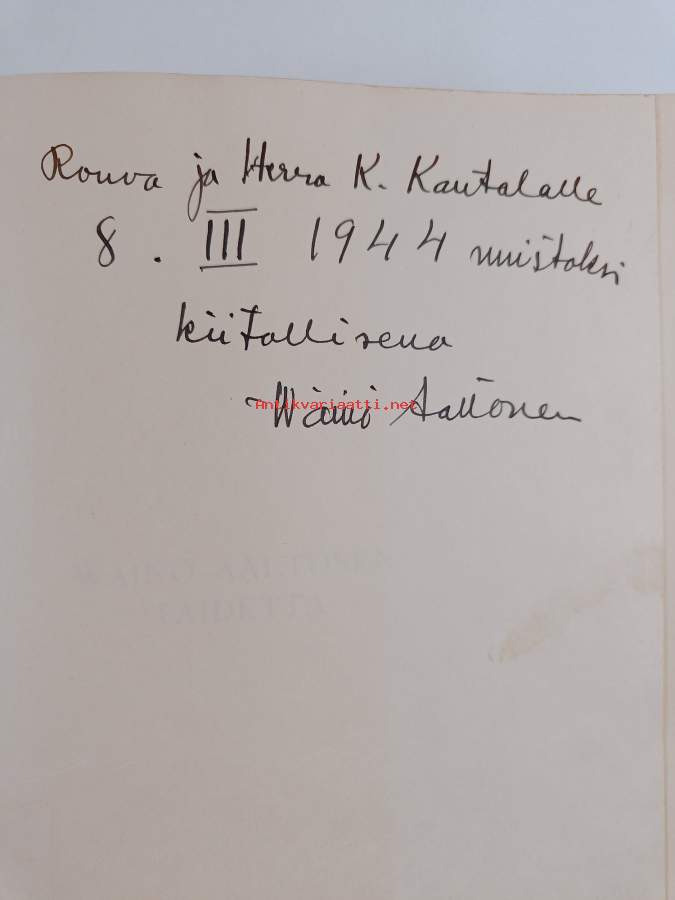 Rouva ja Herra K. Kautalalle
8. III 1944 muistoksi
kiitollisena
Wäinö Aaltonen
Antikvariaatti.net
WÄINÖ AALTOSEN
TAIDETTA